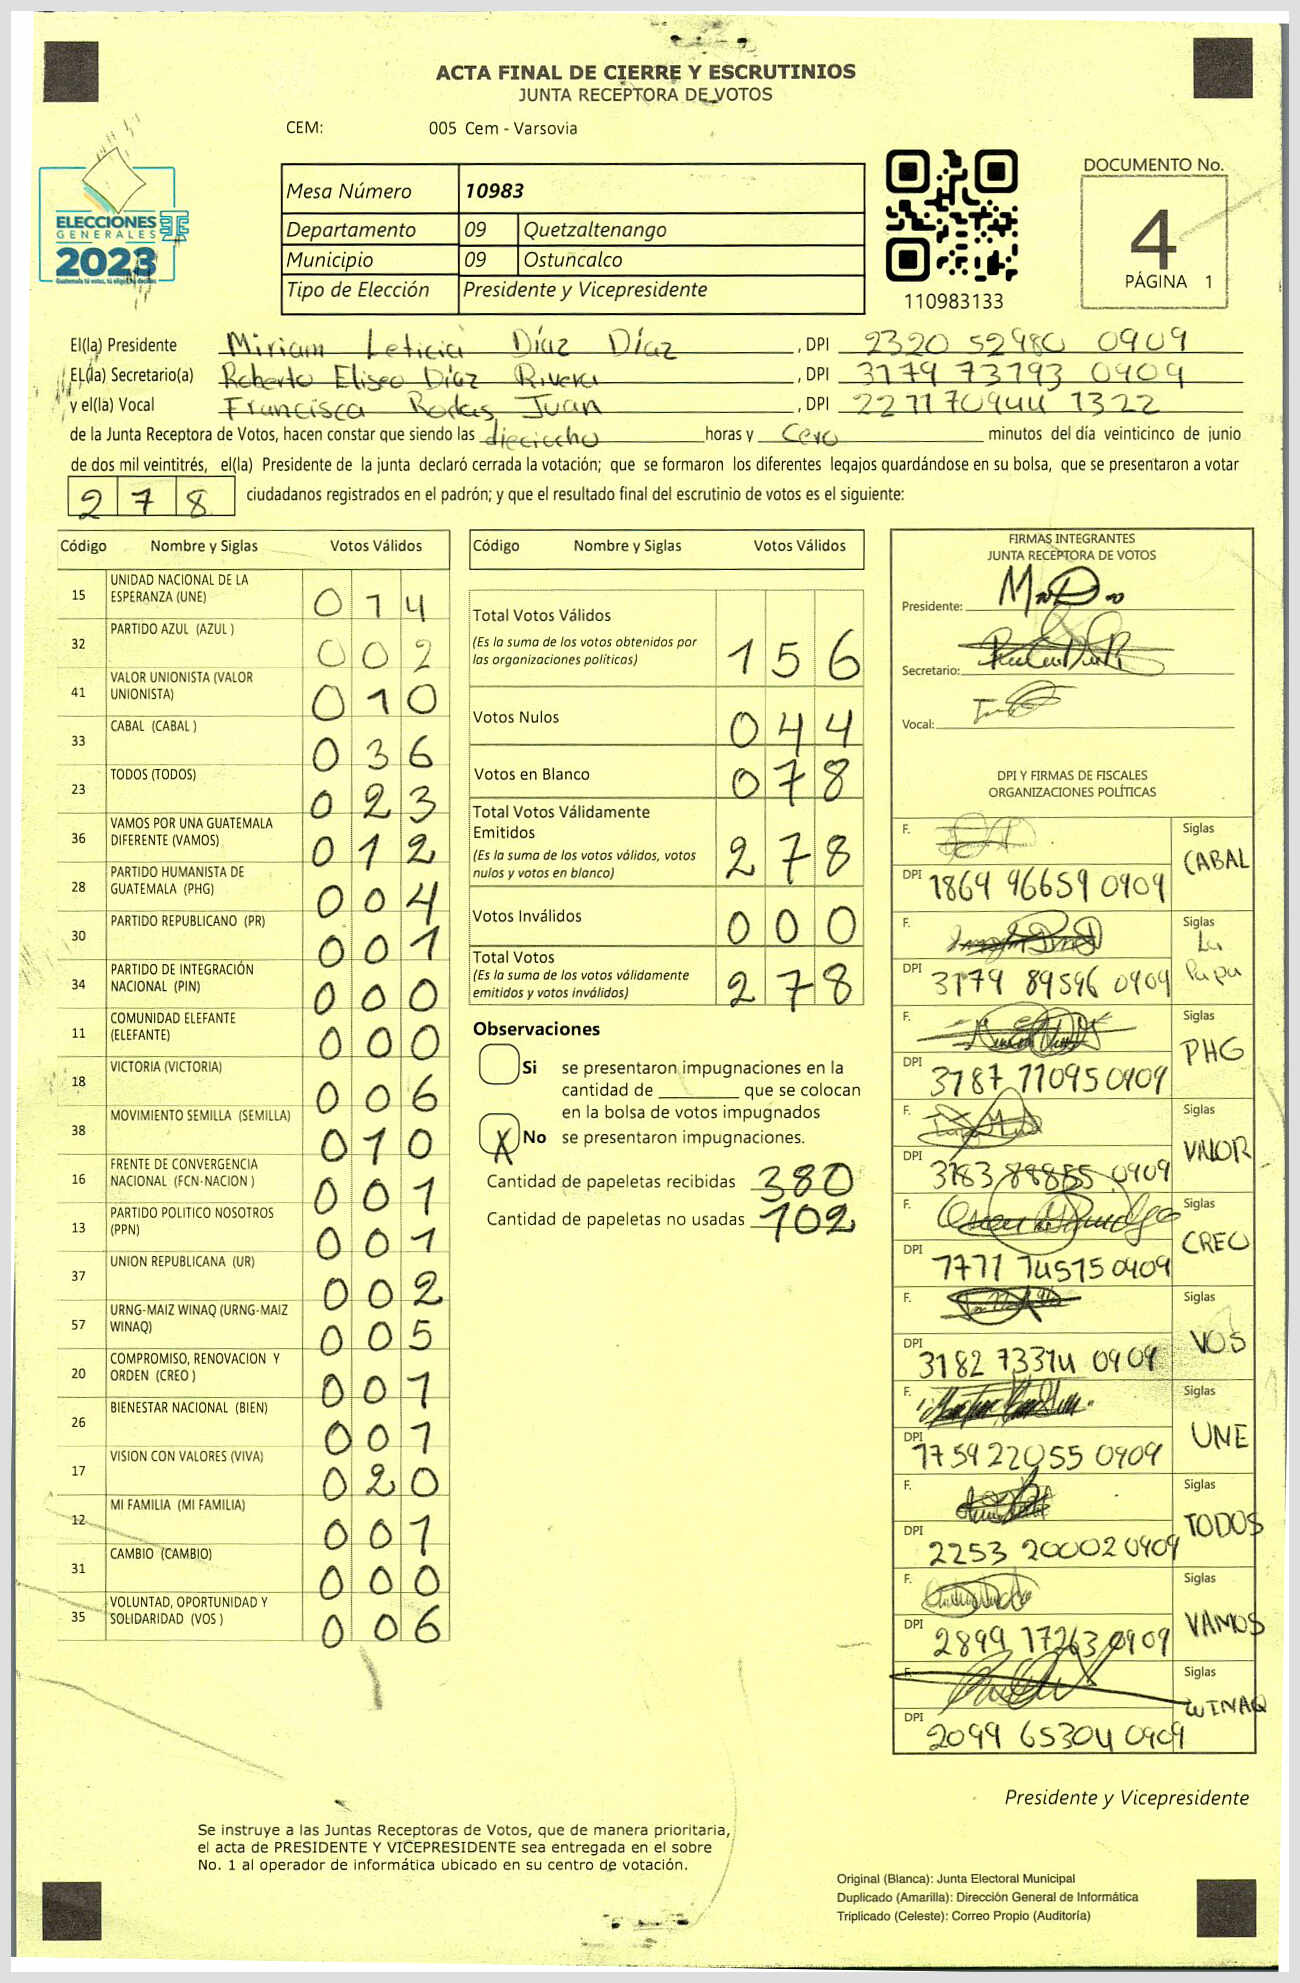 ACTA FINAL DE CIERRE Y ESCRUTINIOS
JUNTA RECEPTORA DE VOTOS
CEM: 005 Cem - Varsovia
ELECCIONES
GENERALES
2023
Guatemala tú votas, tú eliges, tú decides
Mesa Número 10983
Departamento 09 Quetzaltenango
Municipio 09 Ostuncalco
Tipo de Elección Presidente y Vicepresidente
110983133
DOCUMENTO No.
4
PÁGINA 1
El(la) Presidente Miriam Leticia Díaz Díaz , DPI 2320 52980 0909
EL(la) Secretario(a) Roberto Eliseo Díaz Rivera , DPI 3179 73793 0909
y el(la) Vocal Francisca Rodas Juan , DPI 2271 70944 1322
de la Junta Receptora de Votos, hacen constar que siendo las dieciocho horas y Cero minutos del día veinticinco de junio
de dos mil veintitrés, el(la) Presidente de la junta declaró cerrada la votación; que se formaron los diferentes legajos quardándose en su bolsa, que se presentaron a votar
278 ciudadanos registrados en el padrón; y que el resultado final del escrutinio de votos es el siguiente:
Código Nombre y Siglas Votos Válidos
15 UNIDAD NACIONAL DE LA ESPERANZA (UNE) 014
32 PARTIDO AZUL (AZUL ) 002
41 VALOR UNIONISTA (VALOR UNIONISTA) 010
33 CABAL (CABAL ) 036
23 TODOS (TODOS) 023
36 VAMOS POR UNA GUATEMALA DIFERENTE (VAMOS) 012
28 PARTIDO HUMANISTA DE GUATEMALA (PHG) 004
30 PARTIDO REPUBLICANO (PR) 001
34 PARTIDO DE INTEGRACIÓN NACIONAL (PIN) 000
11 COMUNIDAD ELEFANTE (ELEFANTE) 000
18 VICTORIA (VICTORIA) 006
38 MOVIMIENTO SEMILLA (SEMILLA) 010
16 FRENTE DE CONVERGENCIA NACIONAL (FCN-NACION ) 001
13 PARTIDO POLITICO NOSOTROS (PPN) 001
37 UNION REPUBLICANA (UR) 002
57 URNG-MAIZ WINAQ (URNG-MAIZ WINAQ) 005
20 COMPROMISO, RENOVACION Y ORDEN (CREO ) 001
26 BIENESTAR NACIONAL (BIEN) 001
17 VISION CON VALORES (VIVA) 020
12 MI FAMILIA (MI FAMILIA) 001
31 CAMBIO (CAMBIO) 000
35 VOLUNTAD, OPORTUNIDAD Y SOLIDARIDAD (VOS ) 006
Código Nombre y Siglas Votos Válidos
Total Votos Válidos 156
(Es la suma de los votos obtenidos por
las organizaciones políticas)
Votos Nulos 044
Votos en Blanco 078
Total Votos Válidamente
Emitidos 278
(Es la suma de los votos válidos, votos
nulos y votos en blanco)
Votos Inválidos 000
Total Votos 278
(Es la suma de los votos válidamente
emitidos y votos inválidos)
Observaciones
Si se presentaron impugnaciones en la
cantidad de ________ que se colocan
en la bolsa de votos impugnados
X No se presentaron impugnaciones.
Cantidad de papeletas recibidas 380
Cantidad de papeletas no usadas 102
FIRMAS INTEGRANTES
JUNTA RECEPTORA DE VOTOS
Presidente:
Secretario:
Vocal:
DPI Y FIRMAS DE FISCALES
ORGANIZACIONES POLÍTICAS
F. Siglas CABAL
DPI 1869 96659 0909
F. Siglas La Papa
DPI 3179 89596 0909
F. Siglas PHG
DPI 3787 71095 0909
F. Siglas VALOR
DPI 3183 88855 0909
F. Siglas CREO
DPI 1771 74515 0909
F. Siglas VOS
DPI 3182 73374 0909
F. Siglas UNE
DPI 1759 22055 0909
F. Siglas TODOS
DPI 2253 20002 0909
F. Siglas VAMOS
DPI 2899 17263 0909
F. Siglas WINAQ
DPI 2099 65304 0909
Presidente y Vicepresidente
Se instruye a las Juntas Receptoras de Votos, que de manera prioritaria,
el acta de PRESIDENTE Y VICEPRESIDENTE sea entregada en el sobre
No. 1 al operador de informática ubicado en su centro de votación.
Original (Blanca): Junta Electoral Municipal
Duplicado (Amarilla): Dirección General de Informática
Triplicado (Celeste): Correo Propio (Auditoría)